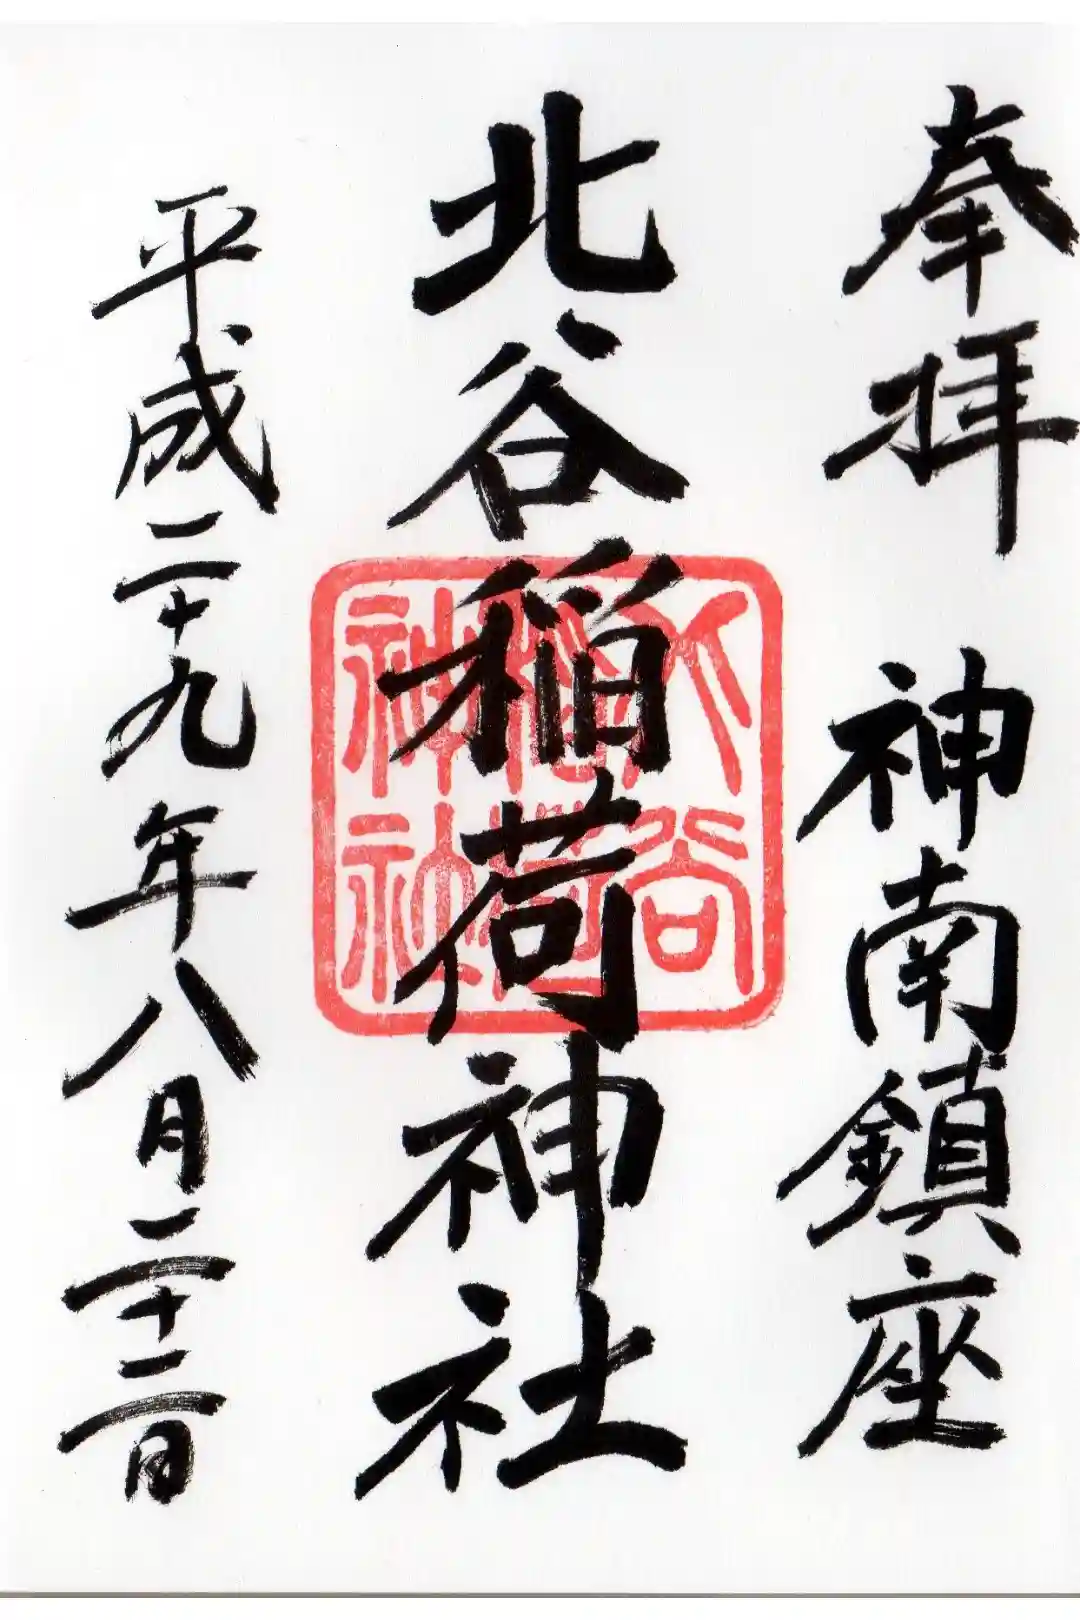 奉拝　神南鎮座
北谷稲荷神社
平成二十九年八月二十二日
北谷
稲荷
神社